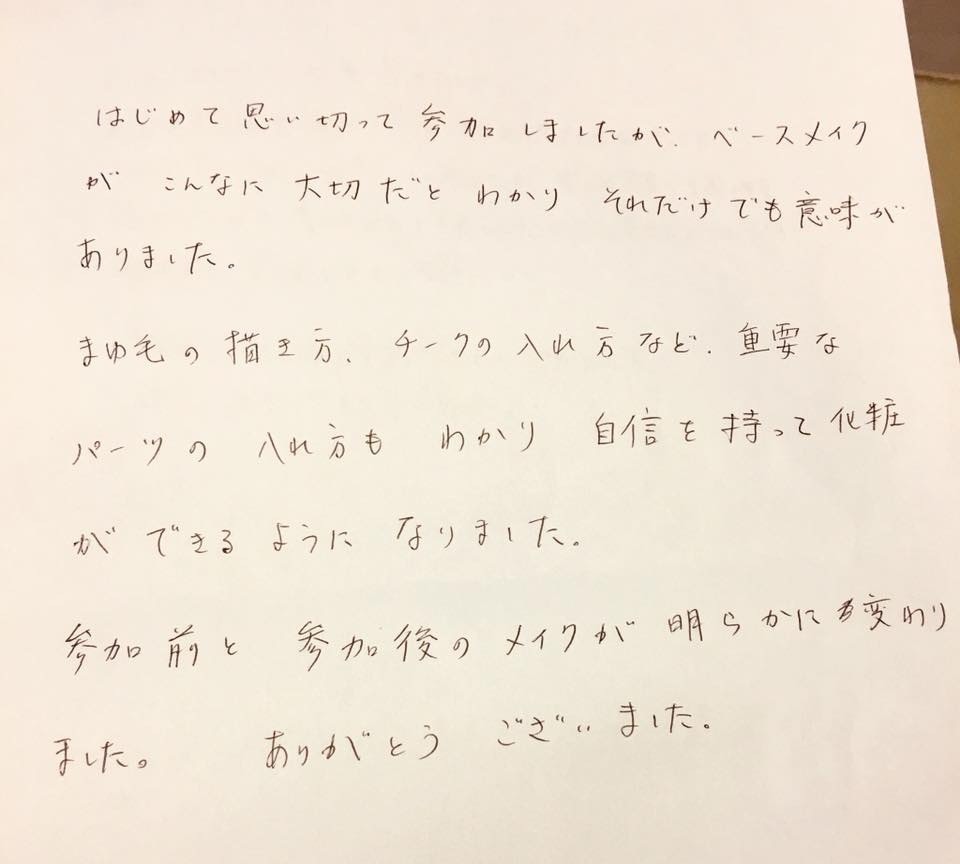 はじめて思い切って参加しましたが、ベースメイク
が こんなに大切だと わかり それだけでも意味が
ありました。
まゆ毛の描き方、チークの入れ方など、重要な
パーツの入れ方も わかり 自信を持って化粧
ができるように なりました。
参加前と 参加後のメイクが明らかに変わり
ました。 ありがとう ございました。